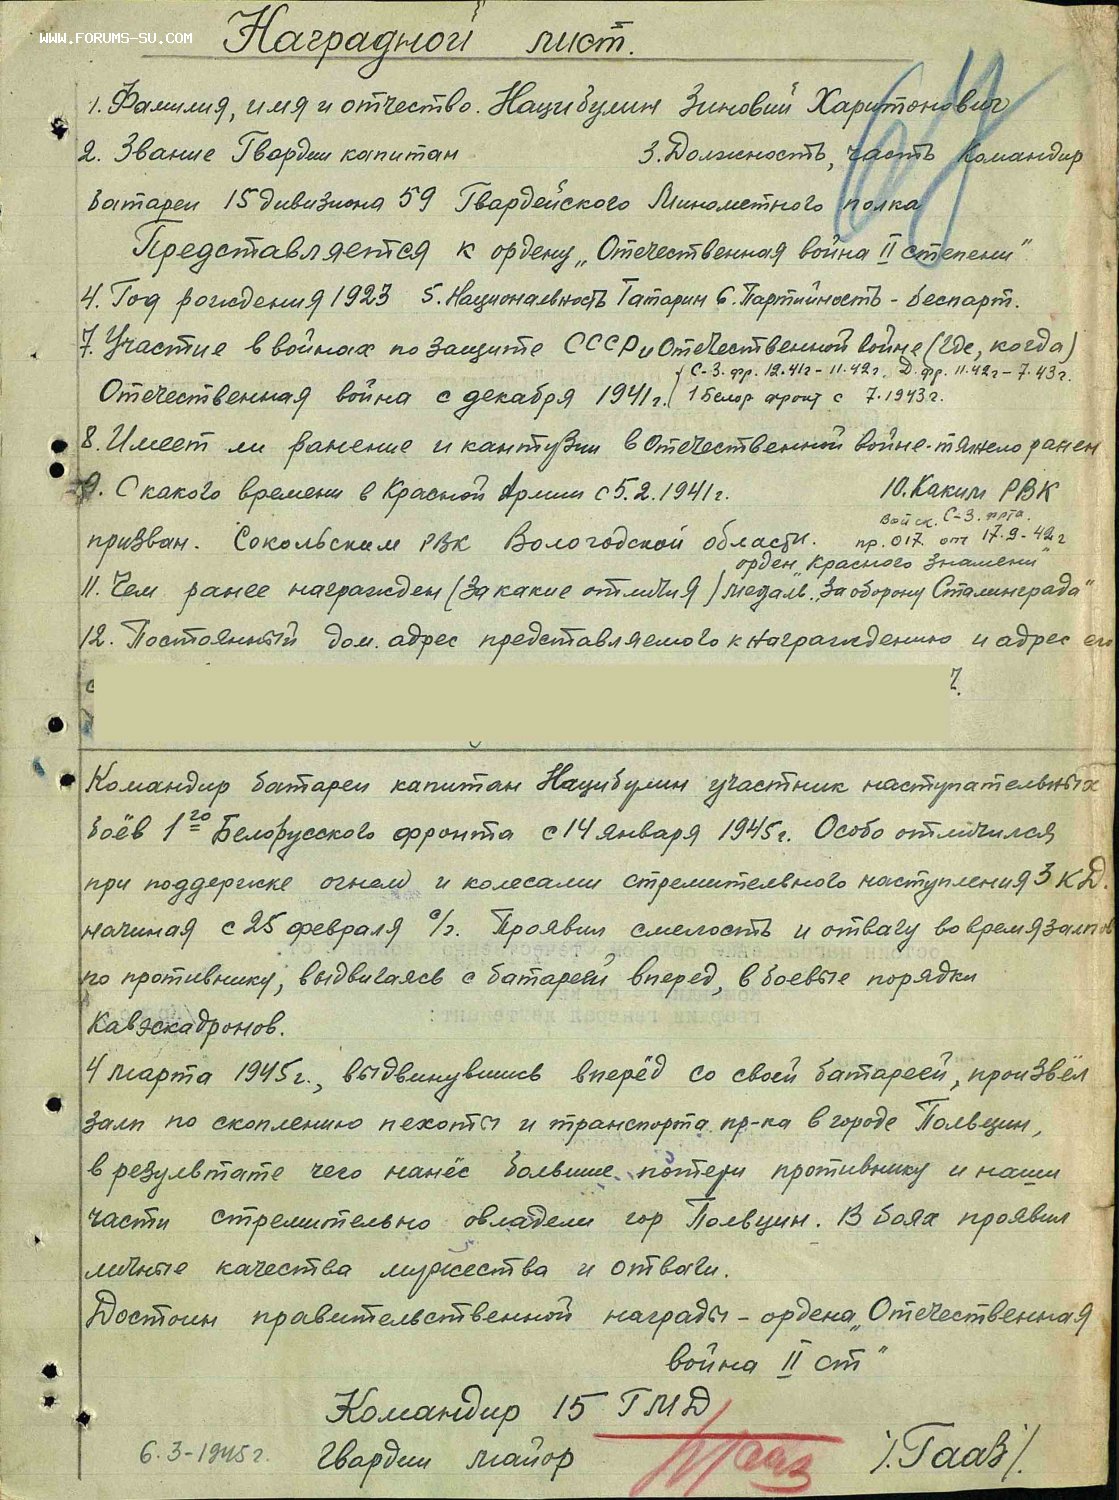 WWW.FORUMS-SU.COM
Наградной лист.
1. Фамилия, имя и отчество. Нацибулин Зиновий Харитонович
2. Звание Гвардии капитан 3. Должность, часть Командир
батареи 15 дивизиона 59 Гвардейского Минометного полка
Представляется к ордену „Отечественная война II степени"
4. Год рождения 1923 5. Национальность Татарин 6. Партийность - беспарт.
7. Участие в войнах по защите СССР и Отечественной войне (где, когда)
С-З. фр. 12.41г - 11.42г. Д. фр. 11.42г - 7.43г.
Отечественная война с декабря 1941г. 1 Белор фронт с 7.1943г.
8. Имеет ли ранение и кантузии в Отечественной войне - тяжело ранен
9. С какого времени в Красной Армии с 5.2.1941г. 10. Каким РВК
войск. С-З. фрта.
призван. Сокольским РВК Вологодской области. пр. 017. от 17.9-42г
орден „Красного знамени"
11. Чем ранее награжден (за какие отличия) медаль „За оборону Сталинграда"
12. Постоянный дом. адрес представляемого к награждению и адрес его
Командир батареи капитан Нацибулин участник наступательных
боёв 1го Белорусского фронта с 14 января 1945г. Особо отличился
при поддержке огнем и колесами стремительного наступления 3 КД.
начиная с 25 февраля с/г. Проявил смелость и отвагу во время залпов
по противнику, выдвигаясь с батареей вперед, в боевые порядки
Кавэскадронов.
4 марта 1945г., выдвинувшись вперёд со своей батареей, произвёл
залп по скоплению пехоты и транспорта пр-ка в городе Польцин,
в результате чего нанёс большие потери противнику и наши
части стремительно овладели гор Польцин. В боях проявил
личные качества мужества и отваги.
Достоин правительственной награды - ордена „Отечественная
война II ст"
Командир 15 ГМД
6.3-1945г. Гвардии майор Гааз /Гааз/.